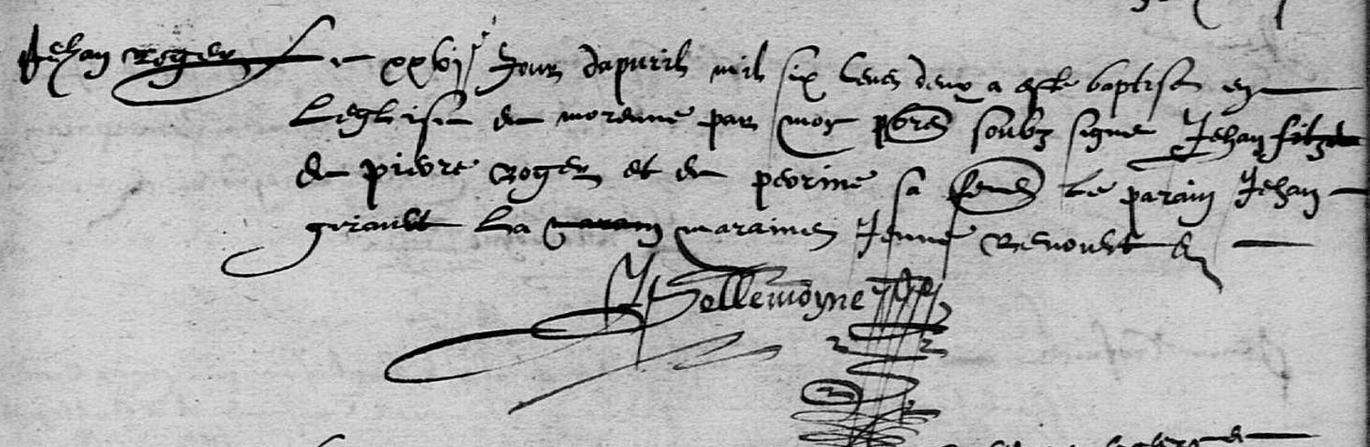 Jehan Roger Le xxvi jour dapvril mil six cens deux a este baptise en
Leglise de moranne par moy pbre soubz signe Jehan filz
de pierre Roger et de perrine sa feme Le parain Jehan
girault La maraine Jenne Renoult
Bellemoyne